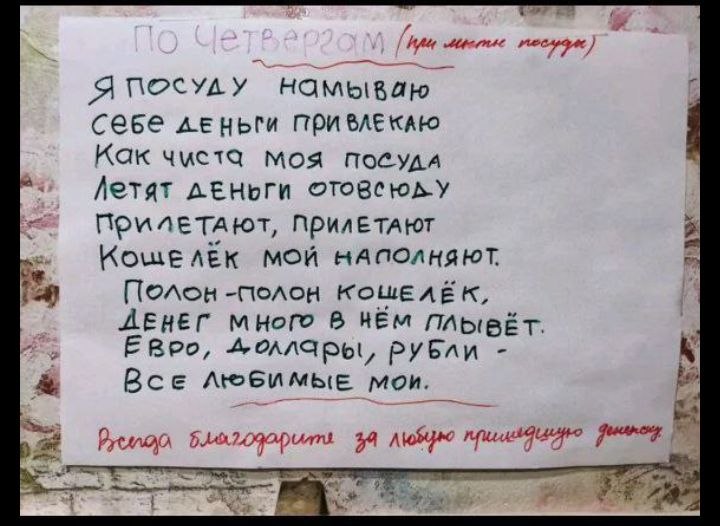 По Четвергам (при мытье посуды)
Я посуду намываю
себе деньги привлекаю
Как чиста моя посуда
Летят деньги отовсюду
Прилетают, прилетают
Кошелёк мой наполняют.
Полон-полон кошелёк,
Денег много в нём плывёт.
Евро, доллары, рубли -
Все любимые мои.
Всегда благодарите за любую пришедшую денежку.